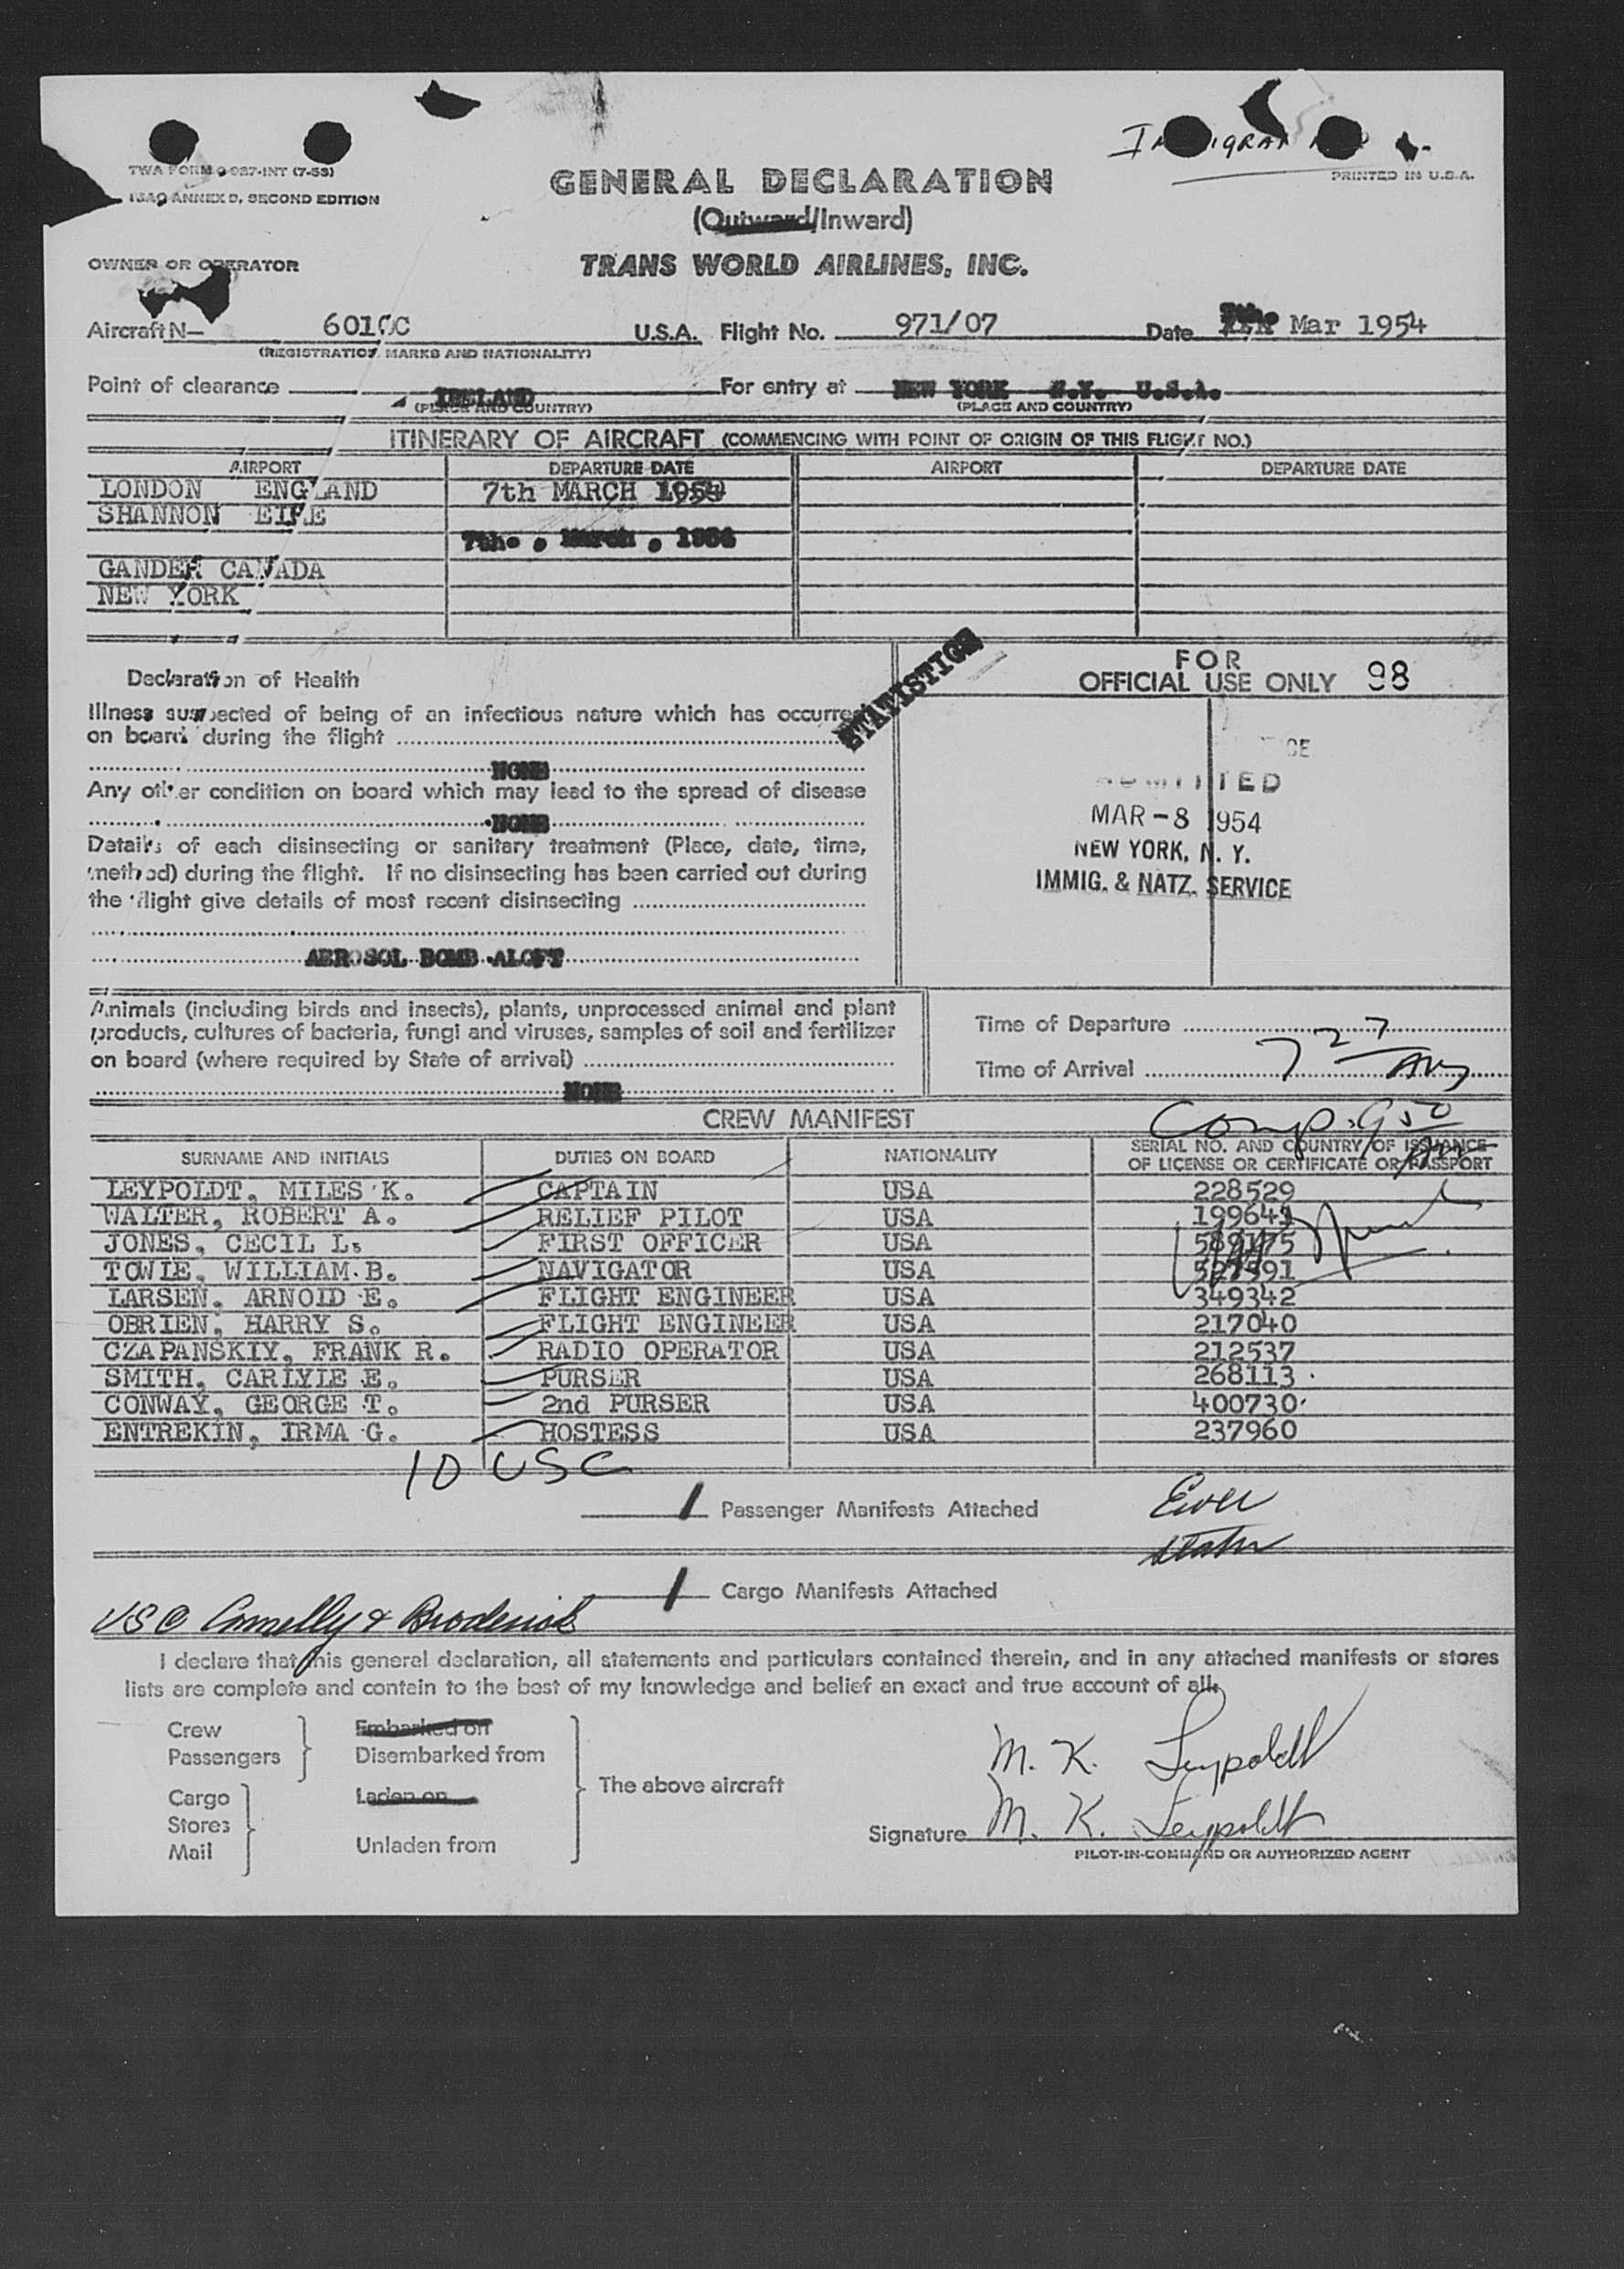 TWA FORM O-927-INT (7-53)
ICAO ANNEX 9, SECOND EDITION
PRINTED IN U.S.A.
GENERAL DECLARATION
(Outward/Inward)
OWNER OR OPERATOR
TRANS WORLD AIRLINES, INC.
Aircraft N— 6010C U.S.A. Flight No. 971/07 Date Mar 1954
(REGISTRATION MARKS AND NATIONALITY)
Point of clearance IRELAND For entry at NEW YORK N.Y. U.S.A.
(PLACE AND COUNTRY) (PLACE AND COUNTRY)
ITINERARY OF AIRCRAFT (COMMENCING WITH POINT OF ORIGIN OF THIS FLIGHT NO.)
AIRPORT DEPARTURE DATE AIRPORT DEPARTURE DATE
LONDON ENGLAND 7th MARCH 1954
SHANNON EIRE
7th. , March , 1954
GANDER CANADA
NEW YORK
STATISTICS
Declaration of Health
Illness suspected of being of an infectious nature which has occurred
on board during the flight
NONE
Any other condition on board which may lead to the spread of disease
NONE
Details of each disinsecting or sanitary treatment (Place, date, time,
method) during the flight. If no disinsecting has been carried out during
the flight give details of most recent disinsecting
AEROSOL BOMB ALOFT
FOR
OFFICIAL USE ONLY 98
ADMITTED
MAR - 8 1954
NEW YORK, N. Y.
IMMIG. & NATZ. SERVICE
Animals (including birds and insects), plants, unprocessed animal and plant
products, cultures of bacteria, fungi and viruses, samples of soil and fertilizer
on board (where required by State of arrival)
NONE
Time of Departure
Time of Arrival 7 27 AM
Comp. 9 50 AM
CREW MANIFEST
SURNAME AND INITIALS DUTIES ON BOARD NATIONALITY SERIAL NO. AND COUNTRY OF ISSUANCE
OF LICENSE OR CERTIFICATE OR PASSPORT
LEYPOLDT, MILES K. CAPTAIN USA 228529
WALTER, ROBERT A. RELIEF PILOT USA 199641
JONES, CECIL L. FIRST OFFICER USA 589175
TOWIE, WILLIAM B. NAVIGATOR USA 527591
LARSEN, ARNOLD E. FLIGHT ENGINEER USA 349342
OBRIEN, HARRY S. FLIGHT ENGINEER USA 217040
CZAPANSKIY, FRANK R. RADIO OPERATOR USA 212537
SMITH, CARLYLE E. PURSER USA 268113
CONWAY, GEORGE T. 2nd PURSER USA 400730
ENTREKIN, IRMA G. HOSTESS USA 237960
10 USC
1 Passenger Manifests Attached
1 Cargo Manifests Attached
USC Connelly & Broderick
I declare that this general declaration, all statements and particulars contained therein, and in any attached manifests or stores
lists are complete and contain to the best of my knowledge and belief an exact and true account of all:
Crew
Passengers
Embarked on
Disembarked from
Cargo
Stores
Mail
Laden on
Unladen from
The above aircraft
M. K. Leypoldt
Signature M. K. Leypoldt
PILOT-IN-COMMAND OR AUTHORIZED AGENT